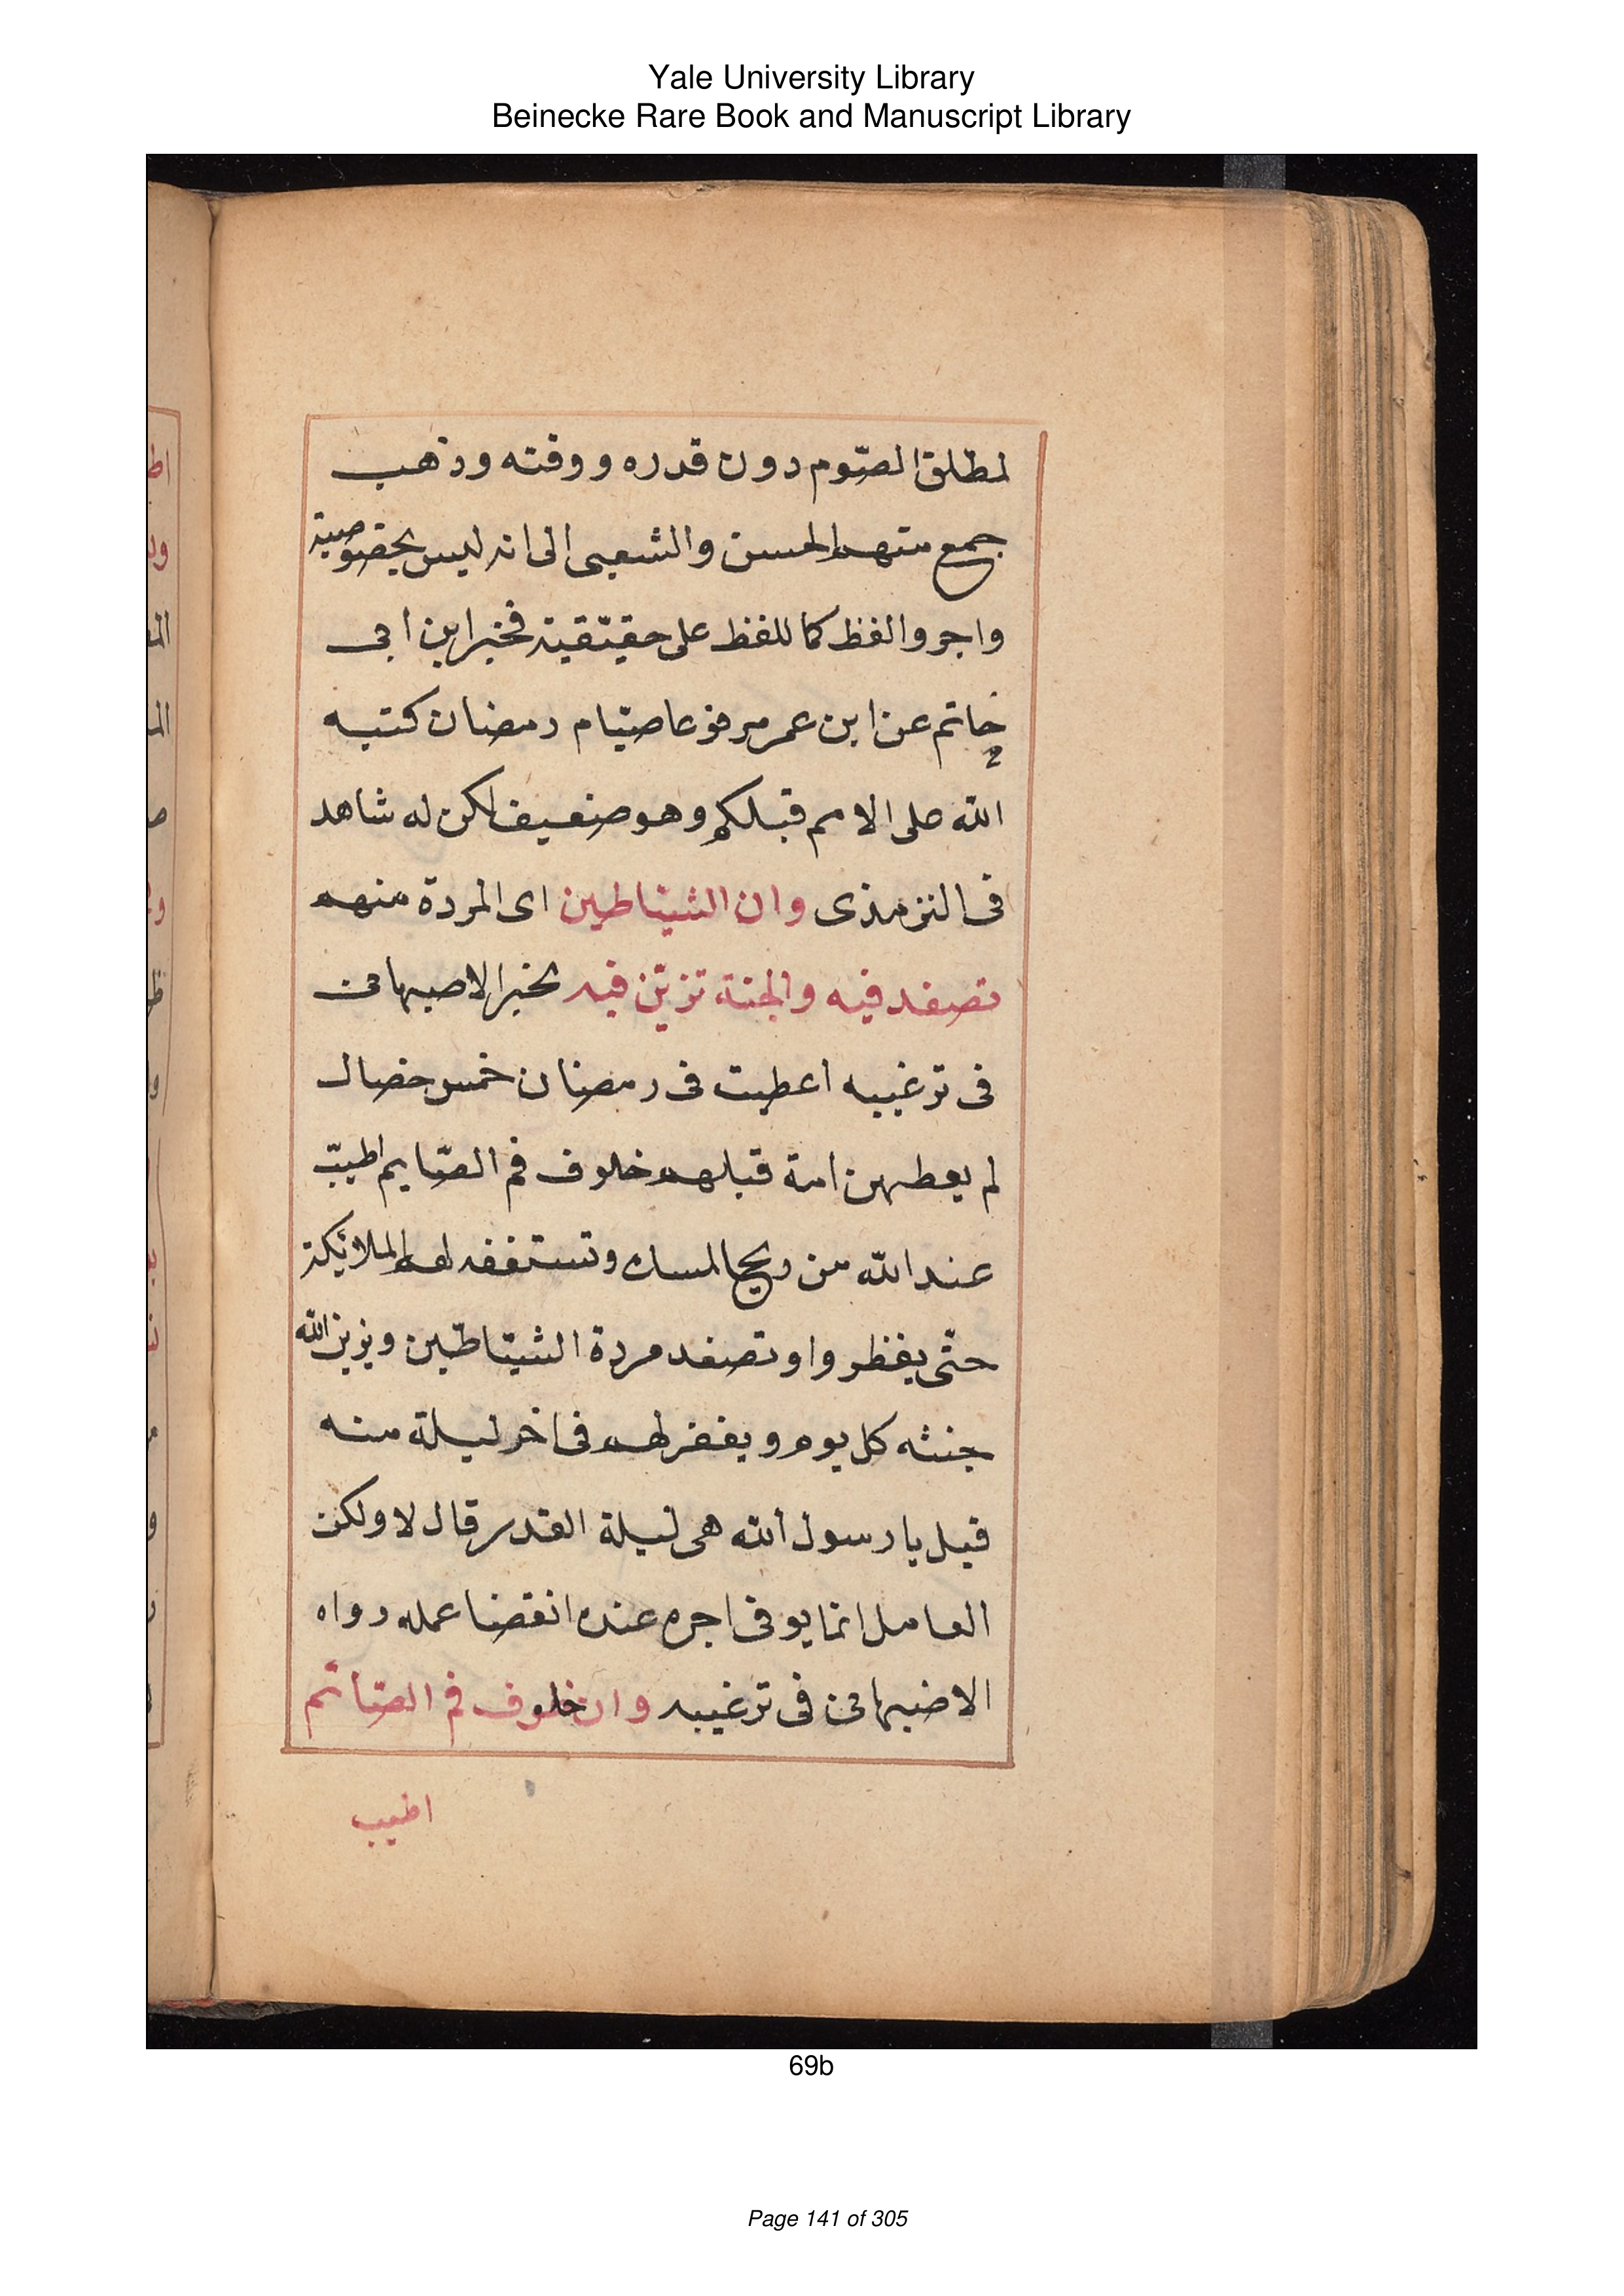 Yale University Library
Beinecke Rare Book and Manuscript Library
لمطلق الصّوم دون قدره ووقته وذهب
جمع منهم الحسن والشعبى الى انه ليس بخصوصية
واجروا لفظ كما للفظ على حقيقية فخبر ابن ابى
حاتم عن ابن عمر مرفوعا صيام رمضان كتبه
الله على الامم قبلكم وهو ضعيف لكن له شاهد
فى الترمذى وان الشيّاطين اى المردة منهم
تصفد فيه والجنة تزيّن فيه لخبر الاصبهانى
فى ترغيبه اعطيت فى رمضان خمس خصال
لم يعطهن امة قبلهم خلوف فم الصّايم اطيبّ
عند الله من ريح المسك وتستغفر لهم الملائكة
حتّى يفطروا وتصفد مردة الشيّاطين ويزين الله
جنته كل يوم ويغفر لهم فى اخر ليلة منه
قيل يا رسول الله هى ليلة القدر قال لا ولكن
العامل انما يوفى اجره عنده انقضا عمله رواه
الاضبهانى فى ترغيبه وان خلوف فم الصّائم
اطيب
69b
Page 141 of 305